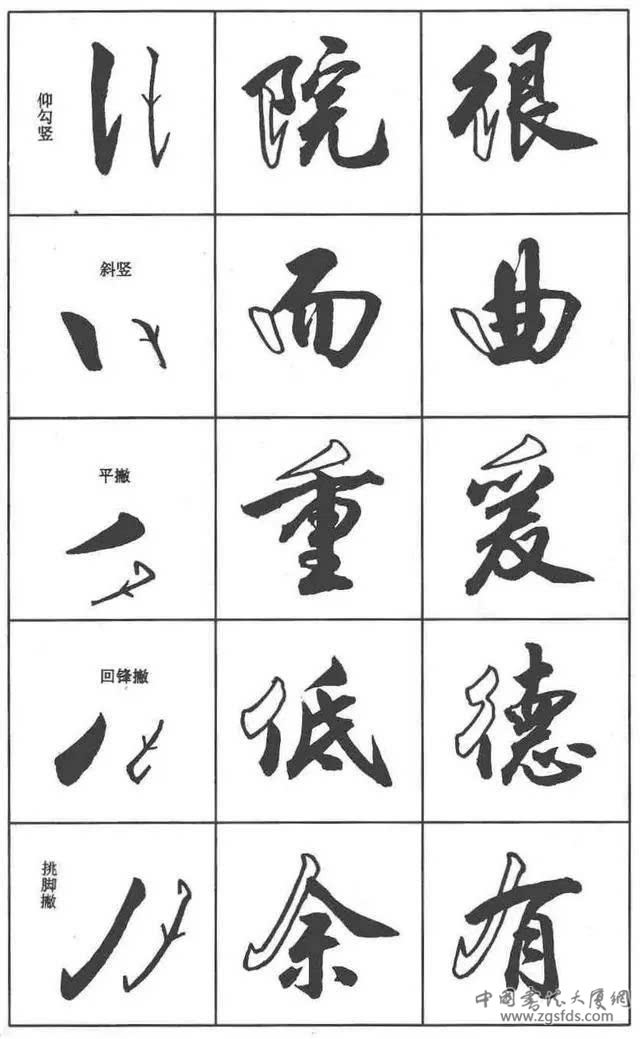 仰勾竖
院
很
斜竖
而
曲
平撇
重
爰
回锋撇
低
德
挑脚撇
余
有
中国书法大厦網
www.zgsfds.com